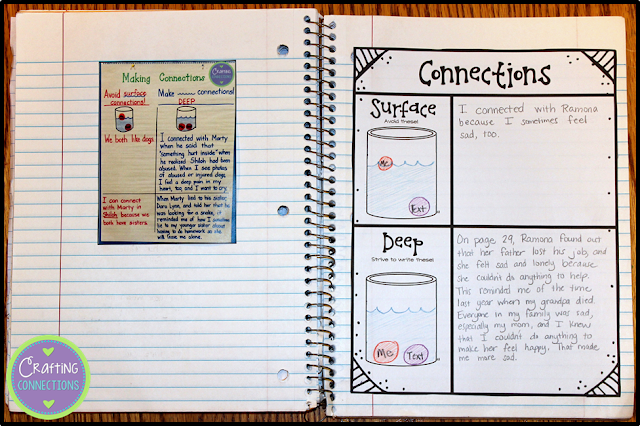 Making Connections
Avoid surface
connections!
Make connections!
DEEP
We both like dogs.
I connected with Marty
when he said that
"something hurt inside" when
he realized Shiloh had been
abused. When I see photos
of abused or injured dogs,
I feel a deep pain in my
heart, too, and I want to cry.
I can connect
with Marty in
Shiloh because we
both have sisters.
When Marty lied to his sister,
Dara Lynn, and told her that he
was looking for a snake, it
reminded me of how I sometimes
lie to my younger sister about
having to do homework so she
will leave me alone.
Crafting
Connections
Connections
Surface
Avoid these!
Me
Text
I connected with Ramona
because I sometimes feel
sad, too.
Deep
Strive to write these!
Me
Text
On page 29, Ramona found out
that her father lost his job, and
she felt sad and lonely because
she couldn't do anything to help.
This reminded me of the time
last year when my grandpa died.
Everyone in my family was sad,
especially my mom, and I knew
that I couldn't do anything to
make her feel happy. That made
me more sad.